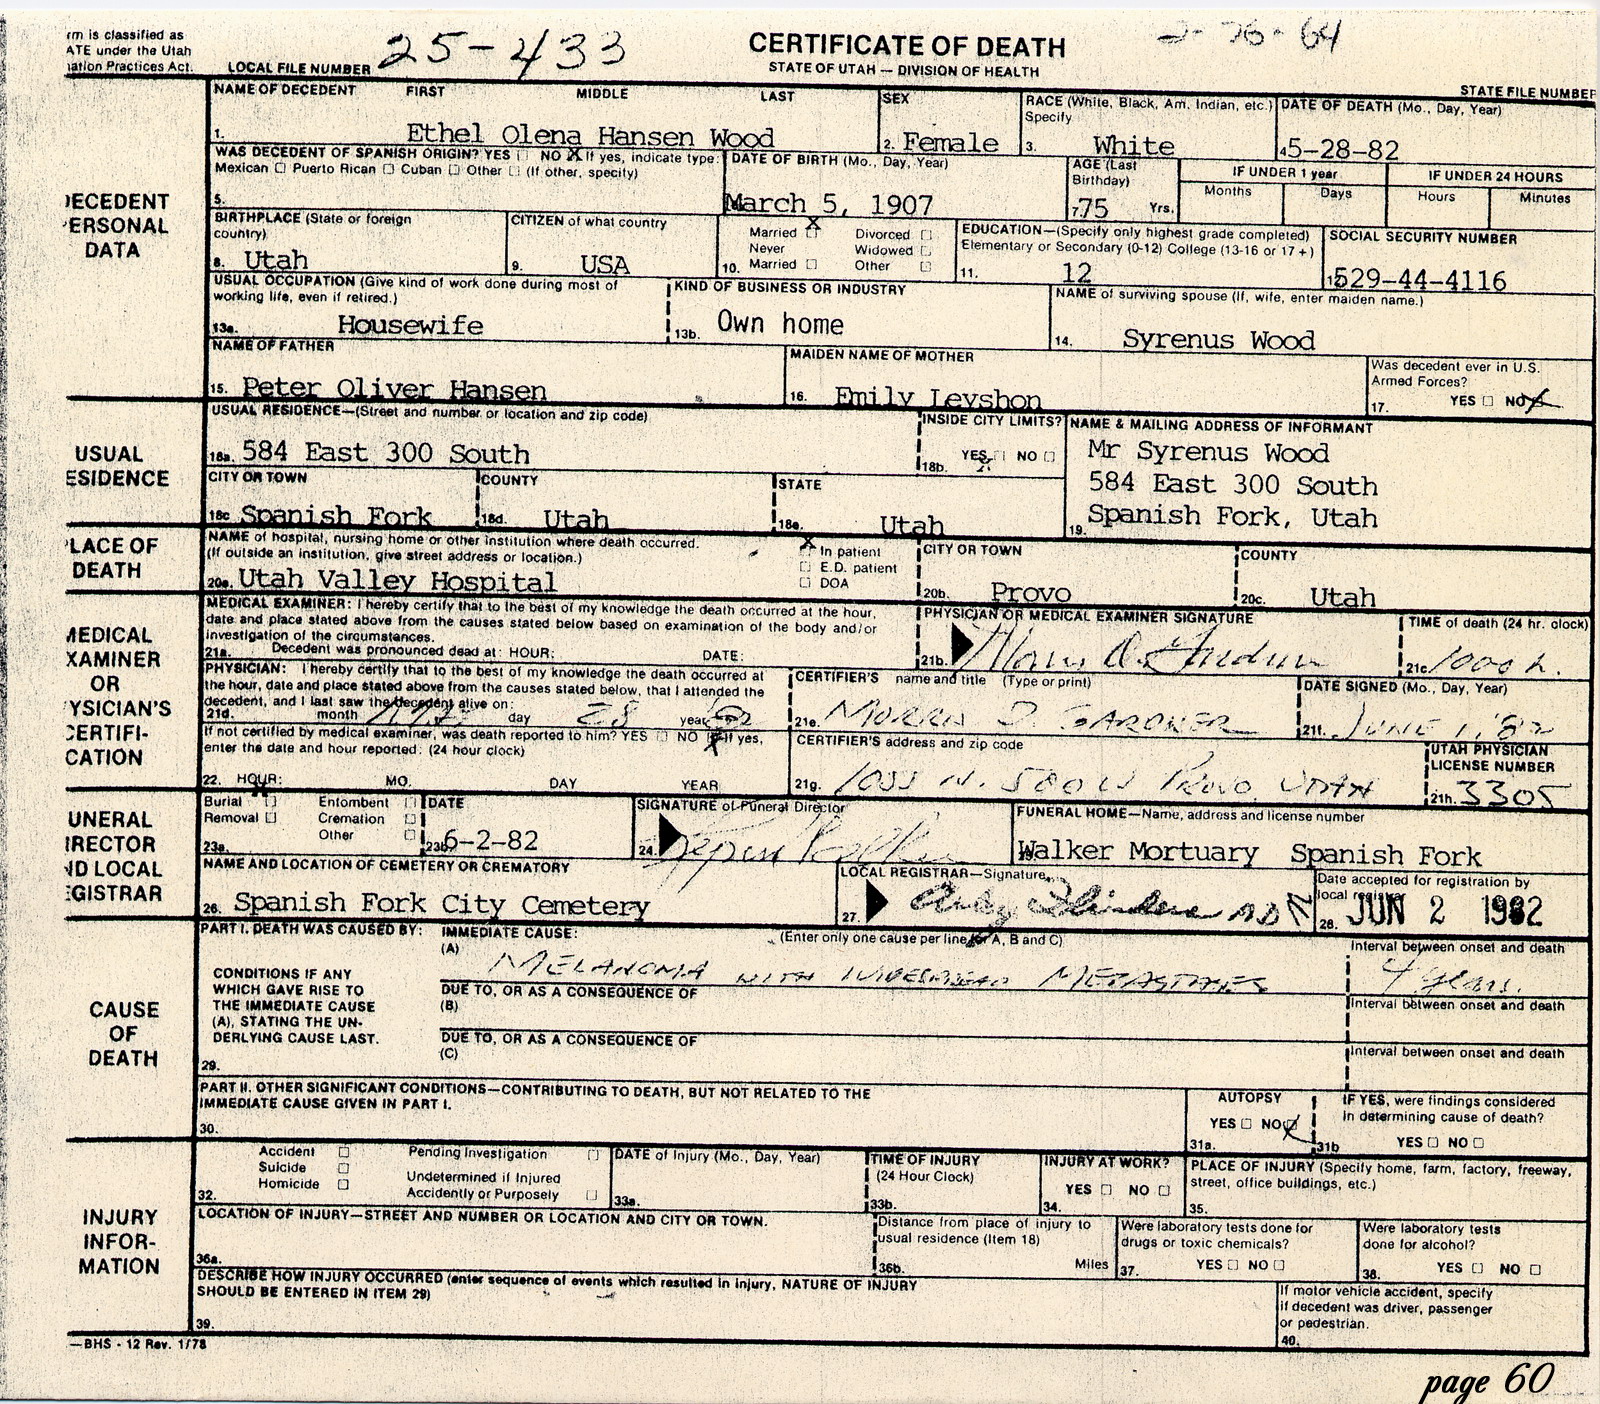 rm is classified as
ATE under the Utah
ation Practices Act.
LOCAL FILE NUMBER 25-433
CERTIFICATE OF DEATH
STATE OF UTAH — DIVISION OF HEALTH
STATE FILE NUMBER
DECEDENT PERSONAL DATA
NAME OF DECEDENT FIRST MIDDLE LAST
1. Ethel Olena Hansen Wood
SEX
2. Female
RACE (White, Black, Am. Indian, etc.) Specify
3. White
DATE OF DEATH (Mo., Day, Year)
4 5-28-82
WAS DECEDENT OF SPANISH ORIGIN? YES □ NO X If yes, indicate type:
Mexican □ Puerto Rican □ Cuban □ Other □ (If other, specify)
5.
DATE OF BIRTH (Mo., Day, Year)
March 5, 1907
AGE (Last Birthday)
7. 75 Yrs.
IF UNDER 1 year
Months Days
IF UNDER 24 HOURS
Hours Minutes
BIRTHPLACE (State or foreign country)
8. Utah
CITIZEN of what country
9. USA
10. Married X Divorced □
Never Married □ Widowed □
Other □
EDUCATION—(Specify only highest grade completed)
Elementary or Secondary (0-12) College (13-16 or 17+)
11. 12
SOCIAL SECURITY NUMBER
12 529-44-4116
USUAL OCCUPATION (Give kind of work done during most of
working life, even if retired.)
13a. Housewife
KIND OF BUSINESS OR INDUSTRY
13b. Own home
NAME of surviving spouse (If, wife, enter maiden name.)
14. Syrenus Wood
NAME OF FATHER
15. Peter Oliver Hansen
MAIDEN NAME OF MOTHER
16. Emily Leyshon
Was decedent ever in U.S.
Armed Forces?
17. YES □ NO X
USUAL RESIDENCE
USUAL RESIDENCE—(Street and number or location and zip code)
18a. 584 East 300 South
INSIDE CITY LIMITS?
18b. YES X NO □
NAME & MAILING ADDRESS OF INFORMANT
Mr Syrenus Wood
584 East 300 South
19. Spanish Fork, Utah
CITY OR TOWN
18c Spanish Fork
COUNTY
18d. Utah
STATE
18e. Utah
PLACE OF DEATH
NAME of hospital, nursing home or other institution where death occurred.
(If outside an institution, give street address or location.)
20a. Utah Valley Hospital
X In patient
□ E.D. patient
□ DOA
CITY OR TOWN
20b. Provo
COUNTY
20c. Utah
MEDICAL EXAMINER OR PHYSICIAN'S CERTIFI-CATION
MEDICAL EXAMINER: I hereby certify that to the best of my knowledge the death occurred at the hour,
date and place stated above from the causes stated below based on examination of the body and/or
investigation of the circumstances.
21a. Decedent was pronounced dead at: HOUR: DATE:
PHYSICIAN OR MEDICAL EXAMINER SIGNATURE
21b.
TIME of death (24 hr. clock)
21c 1000 h.
PHYSICIAN: I hereby certify that to the best of my knowledge the death occurred at
the hour, date and place stated above from the causes stated below, that I attended the
decedent, and I last saw the decedent alive on:
21d. month May day 28 year 82
CERTIFIER'S name and title (Type or print)
21e. MORRIS D. GARDNER
DATE SIGNED (Mo., Day, Year)
21f. JUNE 1, '82
If not certified by medical examiner, was death reported to him? YES □ NO X If yes,
enter the date and hour reported: (24 hour clock)
22. HOUR: MO. DAY YEAR
CERTIFIER'S address and zip code
21g. 1055 N. 500 W PROVO, UTAH
UTAH PHYSICIAN
LICENSE NUMBER
21h. 3305
FUNERAL DIRECTOR AND LOCAL REGISTRAR
Burial X Entombent □
Removal □ Cremation □
23a. Other □
DATE
23b 6-2-82
SIGNATURE of Funeral Director
24.
FUNERAL HOME—Name, address and license number
Walker Mortuary Spanish Fork
NAME AND LOCATION OF CEMETERY OR CREMATORY
26. Spanish Fork City Cemetery
LOCAL REGISTRAR—Signature
27.
Date accepted for registration by
local registrar
28. JUN 2 1982
CAUSE OF DEATH
PART I. DEATH WAS CAUSED BY: IMMEDIATE CAUSE: (Enter only one cause per line for A, B and C)
(A) MELANOMA WITH WIDESPREAD METASTASES
Interval between onset and death
4 years.
CONDITIONS IF ANY
WHICH GAVE RISE TO
THE IMMEDIATE CAUSE
(A), STATING THE UN-
DERLYING CAUSE LAST.
29.
DUE TO, OR AS A CONSEQUENCE OF
(B)
Interval between onset and death
DUE TO, OR AS A CONSEQUENCE OF
(C)
Interval between onset and death
PART II. OTHER SIGNIFICANT CONDITIONS—CONTRIBUTING TO DEATH, BUT NOT RELATED TO THE
IMMEDIATE CAUSE GIVEN IN PART I.
30.
AUTOPSY
31a. YES □ NO X
IF YES, were findings considered
in determining cause of death?
31b YES □ NO □
INJURY INFOR-MATION
Accident □ Pending Investigation □
Suicide □ Undetermined if Injured
Homicide □ Accidently or Purposely □
32.
DATE of Injury (Mo., Day, Year)
33a.
TIME OF INJURY
(24 Hour Clock)
33b.
INJURY AT WORK?
YES □ NO □
34.
PLACE OF INJURY (Specify home, farm, factory, freeway,
street, office buildings, etc.)
35.
LOCATION OF INJURY—STREET AND NUMBER OR LOCATION AND CITY OR TOWN.
36a.
Distance from place of injury to
usual residence (Item 18)
36b. Miles
Were laboratory tests done for
drugs or toxic chemicals?
37. YES □ NO □
Were laboratory tests
done for alcohol?
38. YES □ NO □
DESCRIBE HOW INJURY OCCURRED (enter sequence of events which resulted in injury, NATURE OF INJURY
SHOULD BE ENTERED IN ITEM 29)
39.
If motor vehicle accident, specify
if decedent was driver, passenger
or pedestrian.
40.
—BHS - 12 Rev. 1/78
page 60